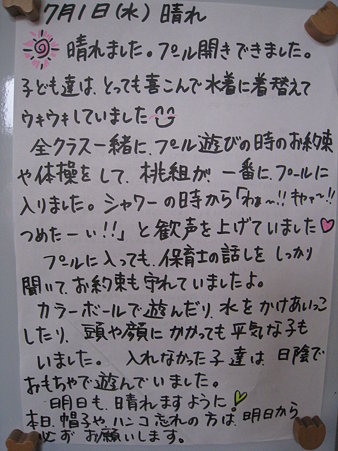 7月1日(水) 晴れ
晴れました。プール開きできました。
子ども達は、とっても喜こんで水着に着替えて
ウキウキしていました
全クラス一緒に、プール遊びの時のお約束
や体操をして、桃組が一番に、プールに
入りました。シャワーの時から「わぁ〜!!キャァ〜!!
つめたーい!!」と歓声を上げていました
プールに入っても、保育士の話しをしっかり
聞いて、お約束も守れていましたよ。
カラーボールで遊んだり、水をかけあいっこ
したり、頭や顔にかかっても平気な子も
いました。 入れなかった子達は、日陰で
おもちゃで遊んでいました。
明日も、晴れますように!
本日、帽子や、ハンコ忘れの方は、明日から
必ずお願いします。